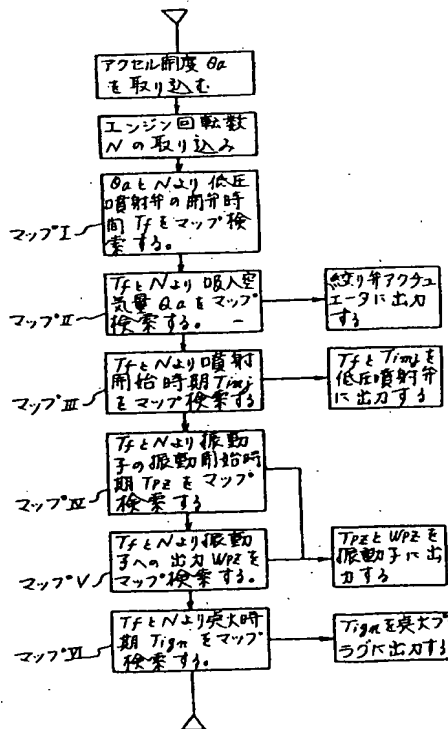 アクセル開度 θa
を取り込む
エンジン回転数
Nの取り込み
θaとNより低圧
噴射弁の開弁時
間Tfをマップ検
索する。
マップⅠ
TfとNより吸入空
気量Qaをマップ
検索する。
マップⅡ
絞り弁アクチュ
エータに出力
する
TfとNより噴射
開始時期Tinj
をマップ検索する
マップⅢ
TfとTinjを
低圧噴射弁
に出力する
TfとNより振動
子の振動開始時
期TPZをマップ
検索する
マップⅣ
TfとNより振動
子への出力WPZを
マップ検索する。
マップⅤ
TPZとWPZを
振動子に出
力する
TfとNより点火時
期Tignをマップ
検索する。
マップⅥ
Tignを点火プ
ラグに出力する